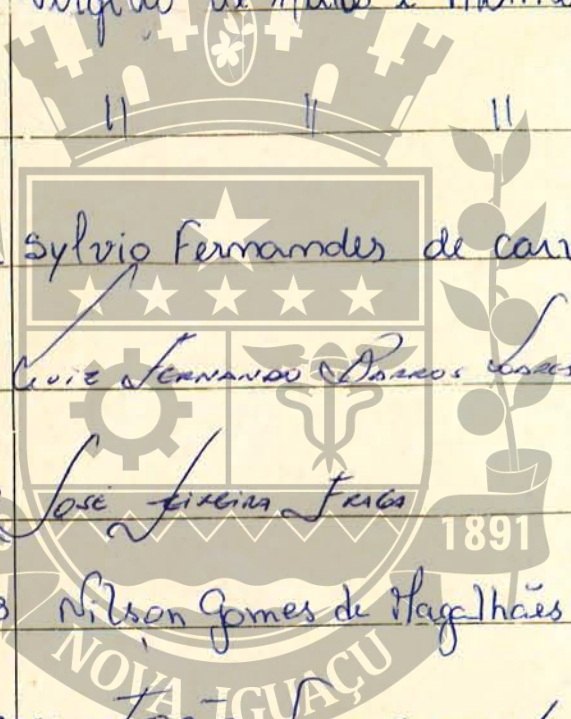 Virgilio de
" " "
Sylvio Fernandes de
Luiz Fernando Barros Soares
José Teixeira Fraga
1891
3 Nilson Gomes de Magalhães
NOVA IGUAÇU